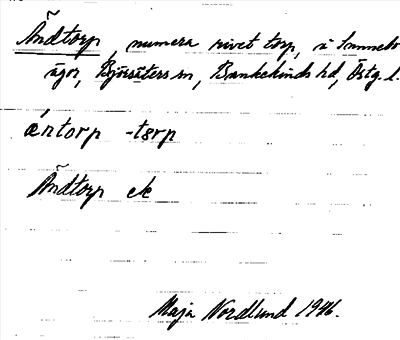 Ändtorp, numera rivet torp, å Sunnebo
ägor, Björsäters sn, Bankekinds hd, Östg. l.
ä́ntorp -tɘrp
Ändtorp ek
Maja Nordlund 1946.